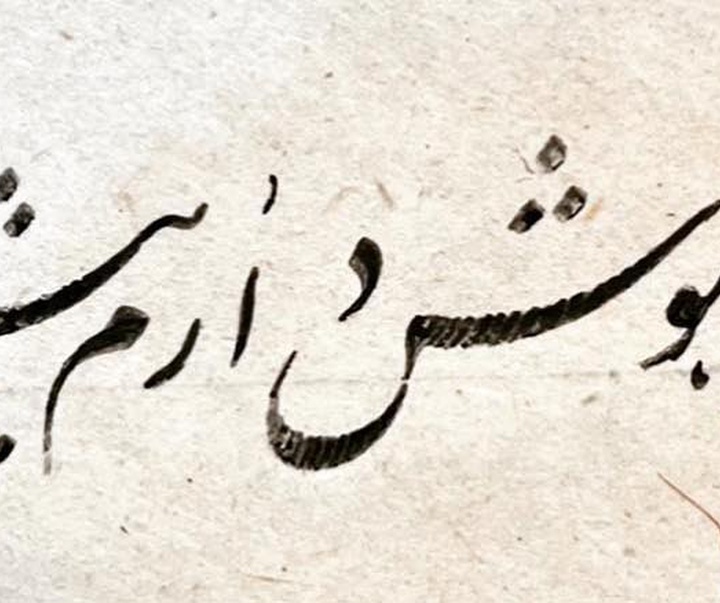 بوش دارم